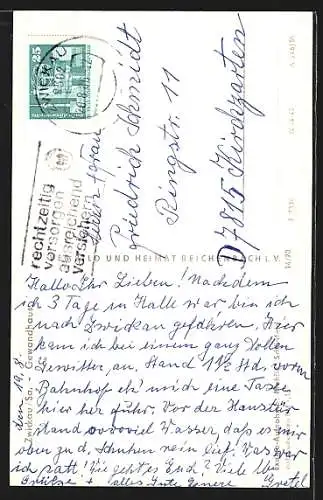 25
rechtzeitig
vorsorgen
ausreichend
versichern
Friedrich Schmidt
Ringstr. 11
D7815 Kirchzarten
BILD UND HEIMAT REICHENBACH I. V.
Zwickau/Sa. - Gewandhaus
den 19. 8.
Hallo Ihr Lieben! Nachdem
ich 3 Tage in Halle war bin ich
nach Zwickau gefahren. Hier
kam ich bei einem ganz tollen
Gewitter, an. Stand 1½ Std. vorm
Bahnhof eh' mich eine Taxe
hier her fuhr. Vor der Haustür
stand soooviel Wasser, daß es mir
oben zu d. Schuhen rein lief. Was war
ich satt! Wie geht es Euch? Viele lb.
Grüße + alles Gute Gretel